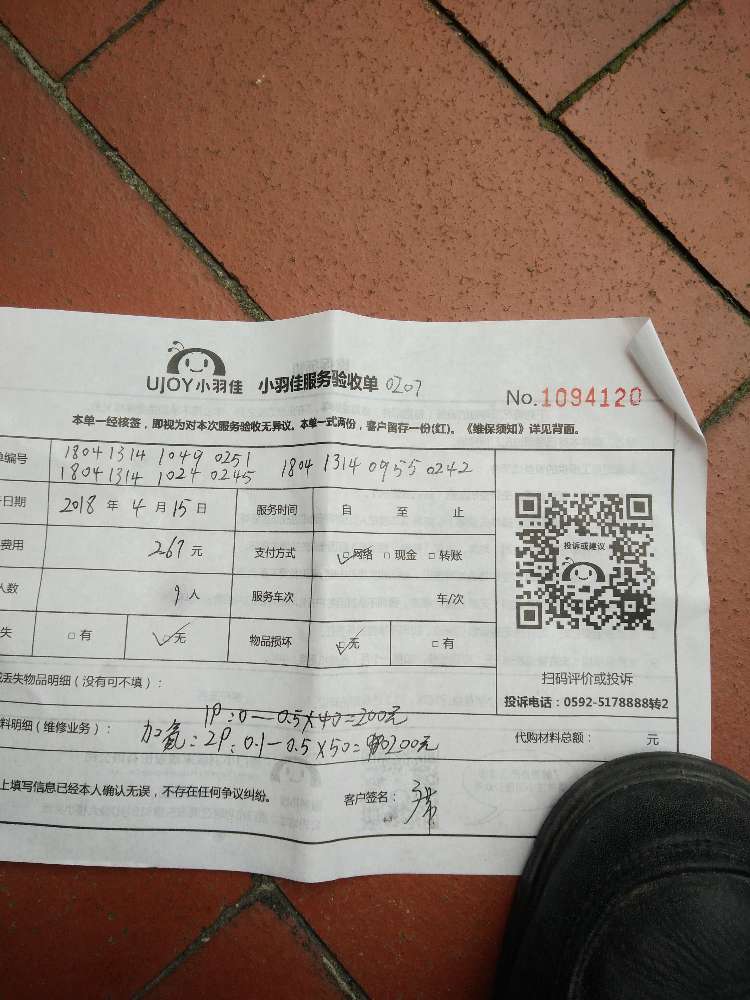 UJOY小羽佳 小羽佳服务验收单 0207
No.1094120
本单一经核签，即视为对本次服务验收无异议。本单一式两份，客户留存一份(红)。《维保须知》详见背面。
单编号 1804 1314 1049 0251
1804 1314 1024 0245 1804 1314 0955 0242
日期 2018 年 4 月 15 日 服务时间 自 至 止
费用 267 元 支付方式 ☑网络 □现金 □转账
人数 人 服务车次 车/次
失 □有 ☑无 物品损坏 ☑无 □有
投诉或建议
扫码评价或投诉
投诉电话：0592-5178888转2
丢失物品明细（没有可不填）：
料明细（维修业务）：
1P：0—0.5×40=200元
加氟：2P：0.1—0.5×50=200元
代购材料总额： 元
上填写信息已经本人确认无误，不存在任何争议纠纷。 客户签名：